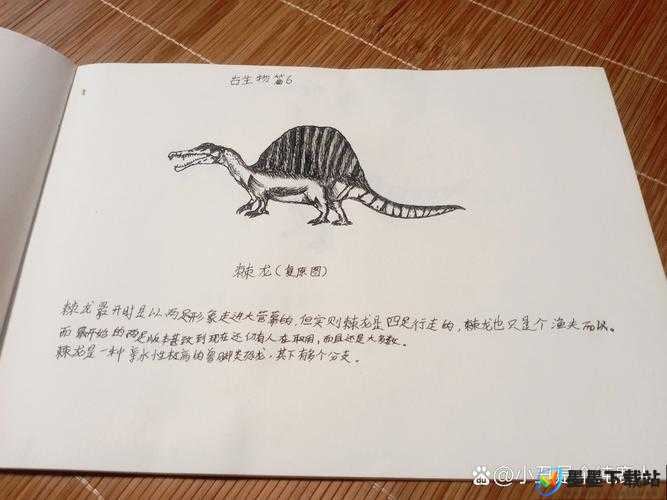 古生物篇6
棘龙(复原图)
棘龙最开时是以两足形象走进大荧幕的,但实则棘龙是四足行走的,棘龙也只是个渔夫而以。
而最开始的两足版本甚致到现在还仍有人在取用,而且还是大多数。
棘龙是一种亲水性极高的兽脚类恐龙,其下有多个分支。
@小丑是
墨墨下载站